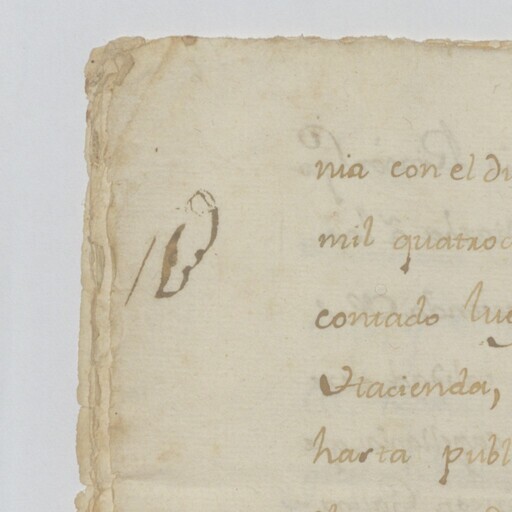 nia con el du
mil quatroc
contado lueg
Hacienda,
harta publ